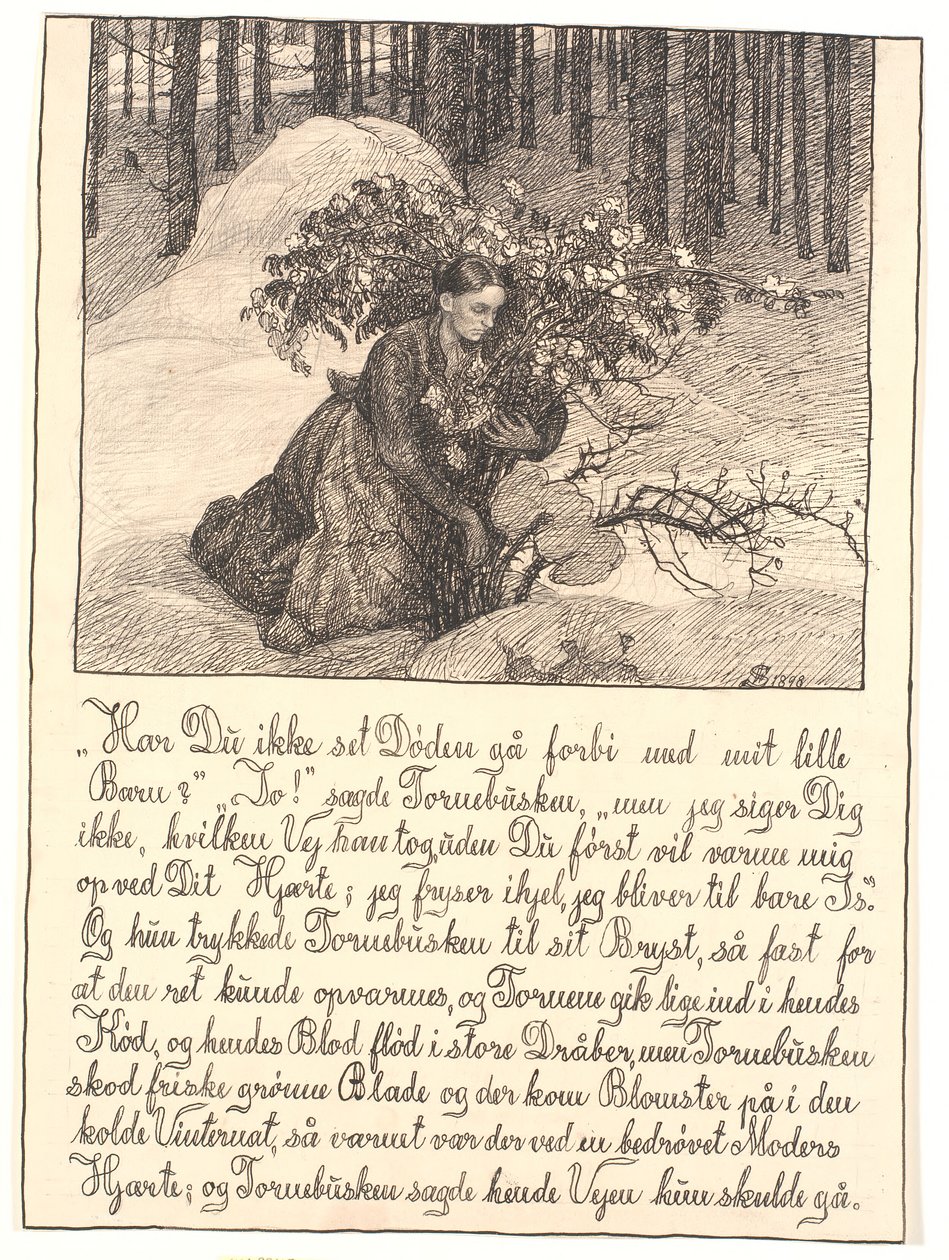 AS 1898
„Har Du ikke set Døden gå forbi med mit lille
Barn?” „Jo!” sagde Tornebusken, „men jeg siger Dig
ikke, hvilken Vej han tog, uden Du først vil varme mig
op ved Dit Hjærte; jeg fryser ihjel, jeg bliver til bare Is.”
Og hun trykkede Tornebusken til sit Bryst, så fast for
at den ret kunde opvarmes, og Tornene gik lige ind i hendes
Kød, og hendes Blod flød i store Dråber, men Tornebusken
skod friske grønne Blade og der kom Blomster på i den
kolde Vinternat, så varmt var der ved en bedrøvet Moders
Hjærte; og Tornebusken sagde hende Vejen hun skulde gå.